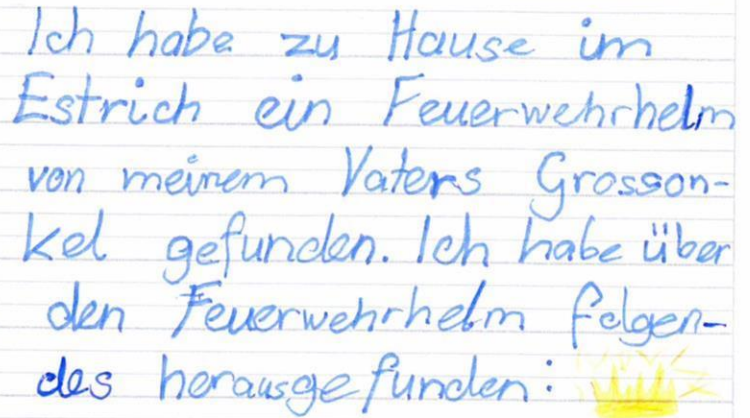 Ich habe zu Hause im
Estrich ein Feuerwehrhelm
von meinem Vaters Grosson-
kel gefunden. Ich habe über
den Feuerwehrhelm folgen-
des herausgefunden: